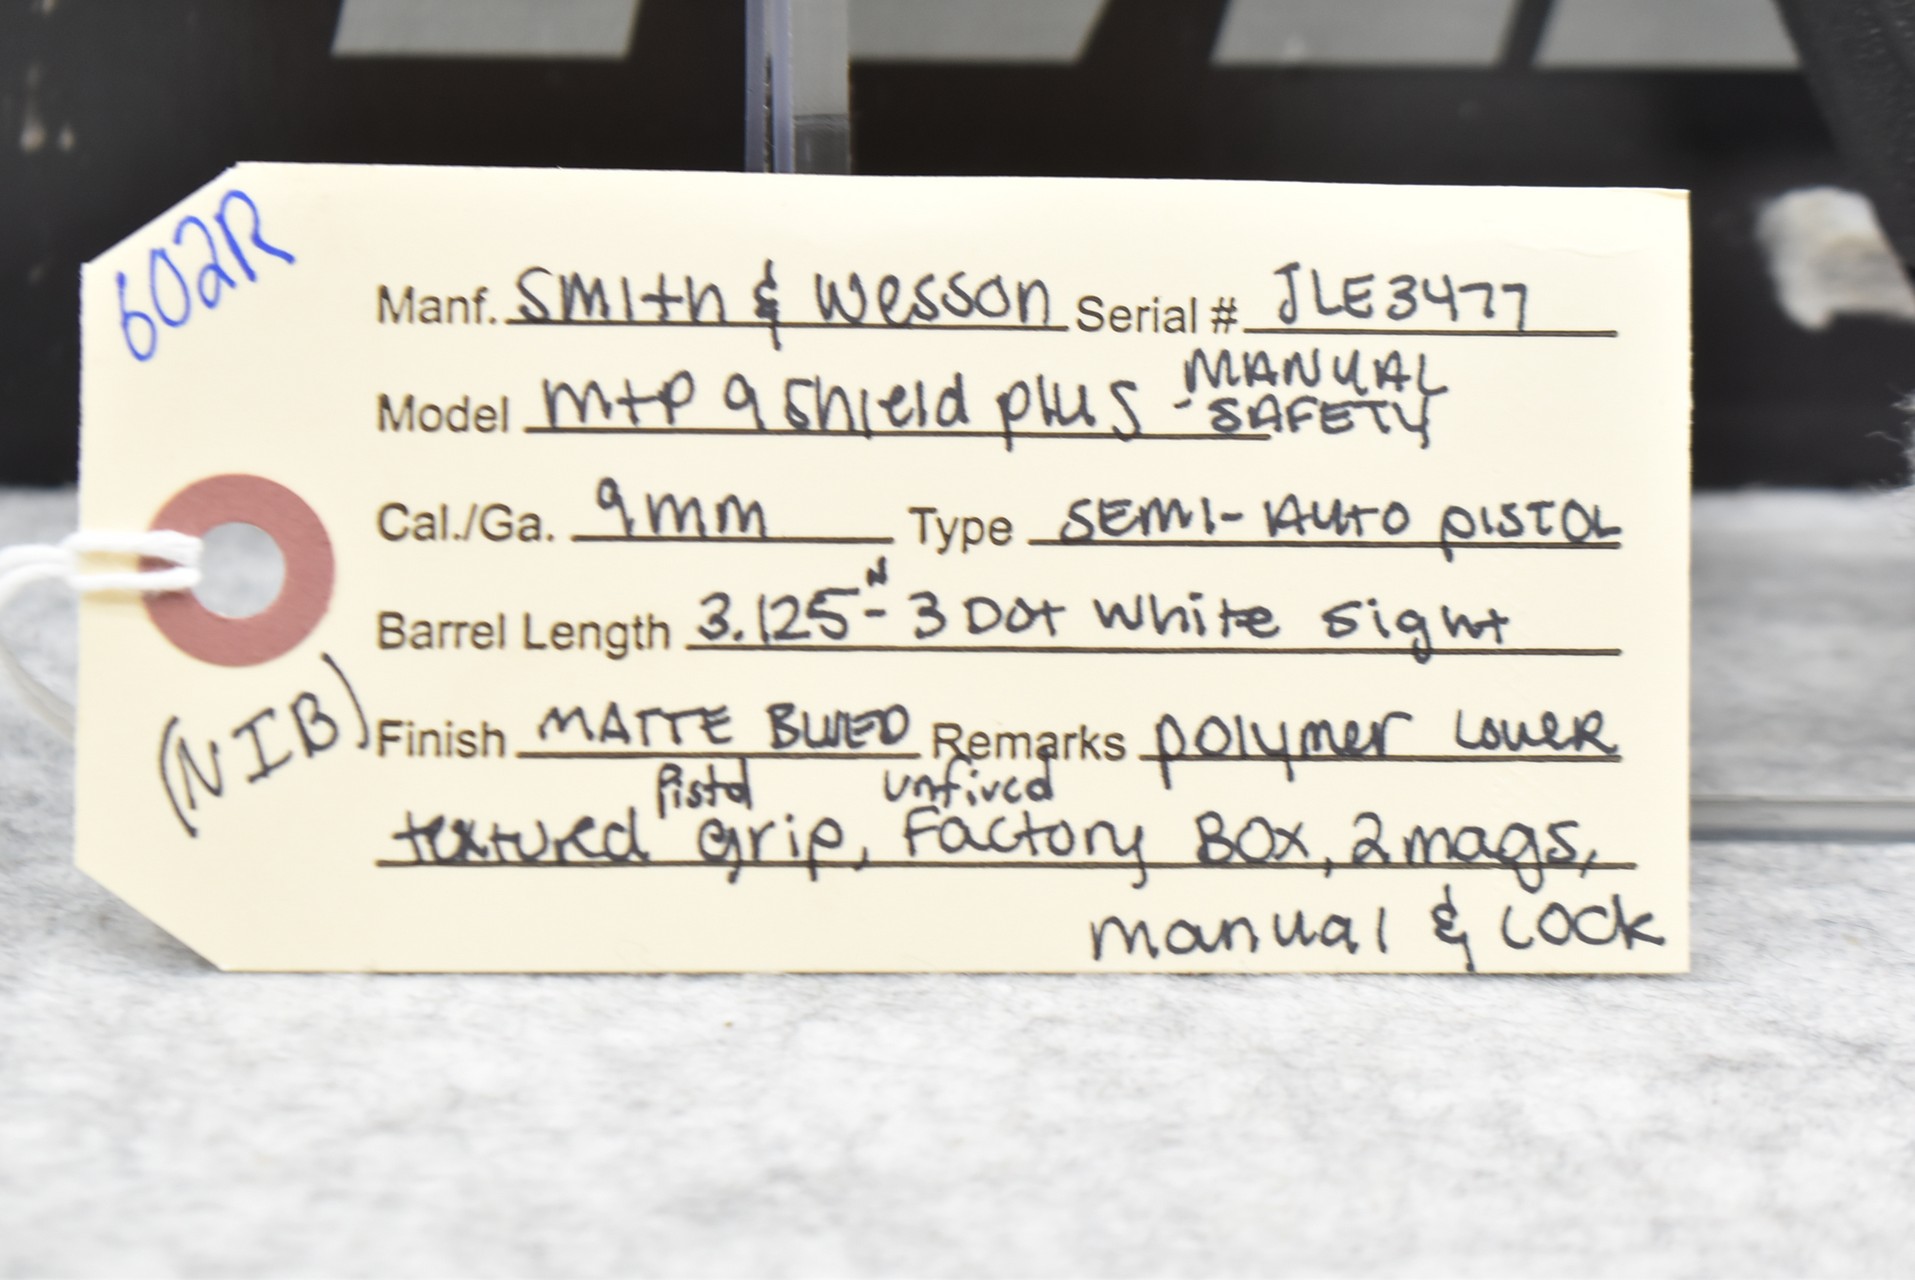 602R
Manf. Smith & Wesson Serial # JLE3477
Model M+P 9 Shield plus - MANUAL SAFETY
Cal./Ga. 9mm Type SEMI-AUTO PISTOL
Barrel Length 3.125" - 3 DOT White Sight
(NIB)
Finish MATTE BLUED Remarks polymer LOWER
textured pistol grip, unfired Factory BOX, 2 mags,
manual & LOCK